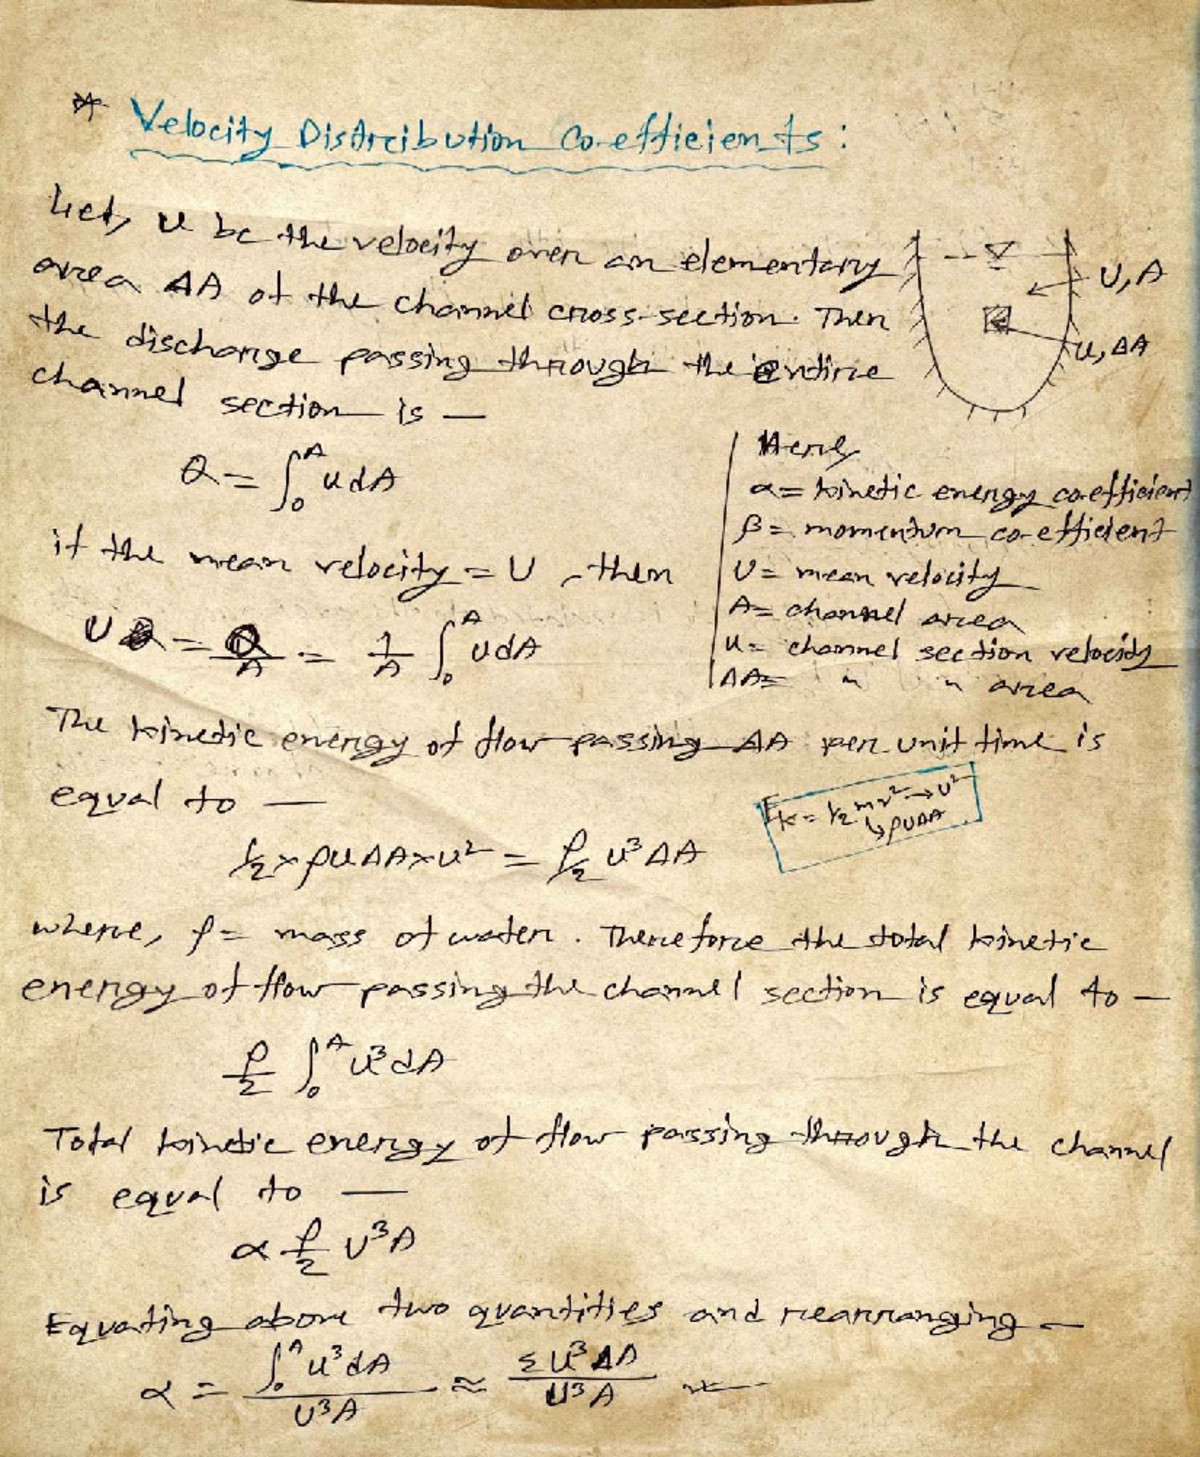 * Velocity Distribution Co-efficients:
Let, u be the velocity over an elementary
area ΔA of the channel cross-section. Then
the discharge passing through the entire
channel section is —
U, A
u, ΔA
Q = ∫₀ᴬ u dA
if the mean velocity = U, then
U = Q/A = 1/A ∫₀ᴬ u dA
Here,
α = kinetic energy co-efficient
β = momentum co-efficient
U = mean velocity
A = channel area
u = channel section velocity
ΔA = " " area
The kinetic energy of flow passing ΔA per unit time is
equal to —
Eₖ = ½ m v² → u²
↳ ρuΔA
½ × ρuΔA × u² = ρ/2 u³ ΔA
where, ρ = mass of water. Therefore the total kinetic
energy of flow passing the channel section is equal to —
ρ/2 ∫₀ᴬ u³ dA
Total kinetic energy of flow passing through the channel
is equal to —
α ρ/2 U³A
Equating above two quantities and rearranging —
α = ∫₀ᴬ u³ dA / U³A ≈ Σ u³ ΔA / U³A